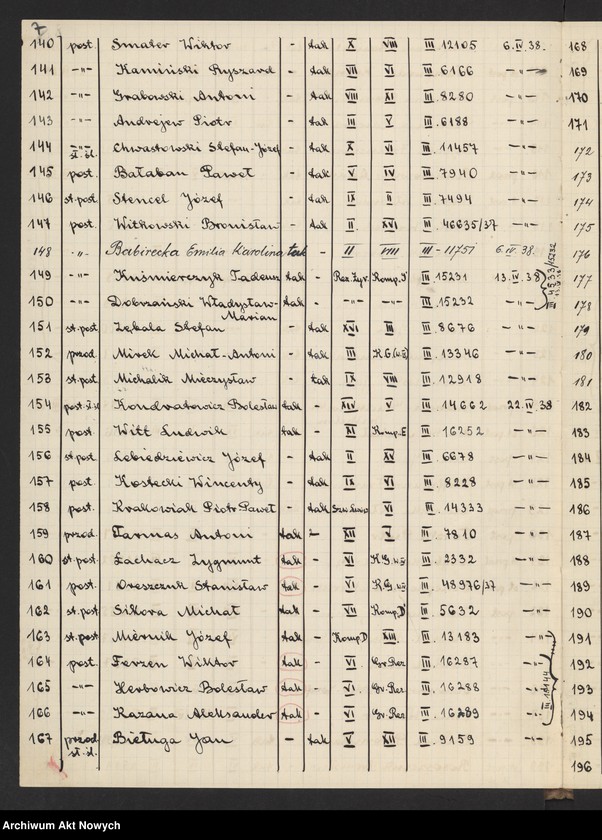 7
140 post. Smater Wiktor - tak X VIII III. 12105 6.IV.38. 168
141 -"- Kamiński Ryszard - tak VII VI III. 6166 -"- 169
142 -"- Grabowski Antoni - tak VIII XI III. 8280 -"- 170
143 -"- Andrejew Piotr - tak III V III. 6188 -"- 171
144 -"- Chwastowski Stefan-Józef - tak X VI III. 11457 -"- 172
st.sl.
145 post. Bałaban Paweł - tak V IV III. 7940 -"- 173
146 st.post. Stencel Józef - tak IX II III. 7494 -"- 174
147 post. Witkowski Bronisław - tak II. XVI III. 46635/37 -"- 175
148 -"- Babirecka Emilia Karolina tak - II VIII III - 11751 6.IV.38. 176
149 -"- Kuśmierczyk Tadeusz tak - Rez.Zyr. Komp.P III. 15231 13.IV.38 177
III 4533/15232
150 -"- Dobrzański Władysław- tak - -"- -"- III. 15232 -"- 178
Marian
151 st.post. Zękala Stefan - tak XVI III III. 8676 -"- 179
152 przod. Mirek Michał-Antoni - tak III III. 13346 -"- 180
153 st.post. Michalik Mieczysław - tak IX VIII III. 12918 -"- 181
154 Kondratowicz Bolesław tak - XIV V III. 14662 22.IV.38 182
155 post. Witt Ludwik tak - XI Komp.E III. 16252 -"- 183
156 st.post. Lebiedziewicz Józef - tak II XV III. 6678 -"- 184
157 post. Kostecki Wincenty - tak IX VI III. 8228 -"- 185
158 post. Krakowiak Piotr Paweł - tak VI III. 14333 -"- 186
159 przod. Tarmas Antoni tak - XII V III. 7810 -"- 187
160 st.post. Łachacz Zygmunt tak - VI III. 2332 -"- 188
161 post. Oreszczuk Stanisław tak - VI III. 48976/37 -"- 189
162 st.post. Sikora Michał tak - VII Komp.D III. 5632 -"- 190
163 st.post. Miernik Józef tak - Komp.D XIII. III. 13183 -"- 191
164 post. Ferzen Wiktor tak - VI Gr.Rez. III. 16287 -"- 192
165 -"- Herbowicz Bolesław tak - VI. Gr.Rez. III. 16288 -"- 193
III 16144
166 -"- Kazana Aleksander tak - VI Gr.Rez. III. 16289 -"- 194
167 przod. Bieługa Jan - tak V XII III. 9159 -"- 195
st.sl.
196
Archiwum Akt Nowych